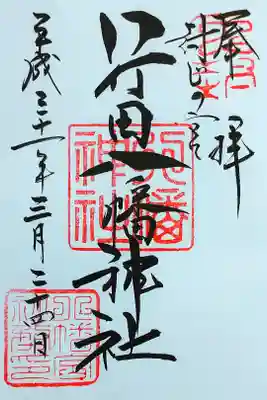 奉拝
封じの宮
行田八幡神社
八幡
神社
平成三十一年三月二十四日